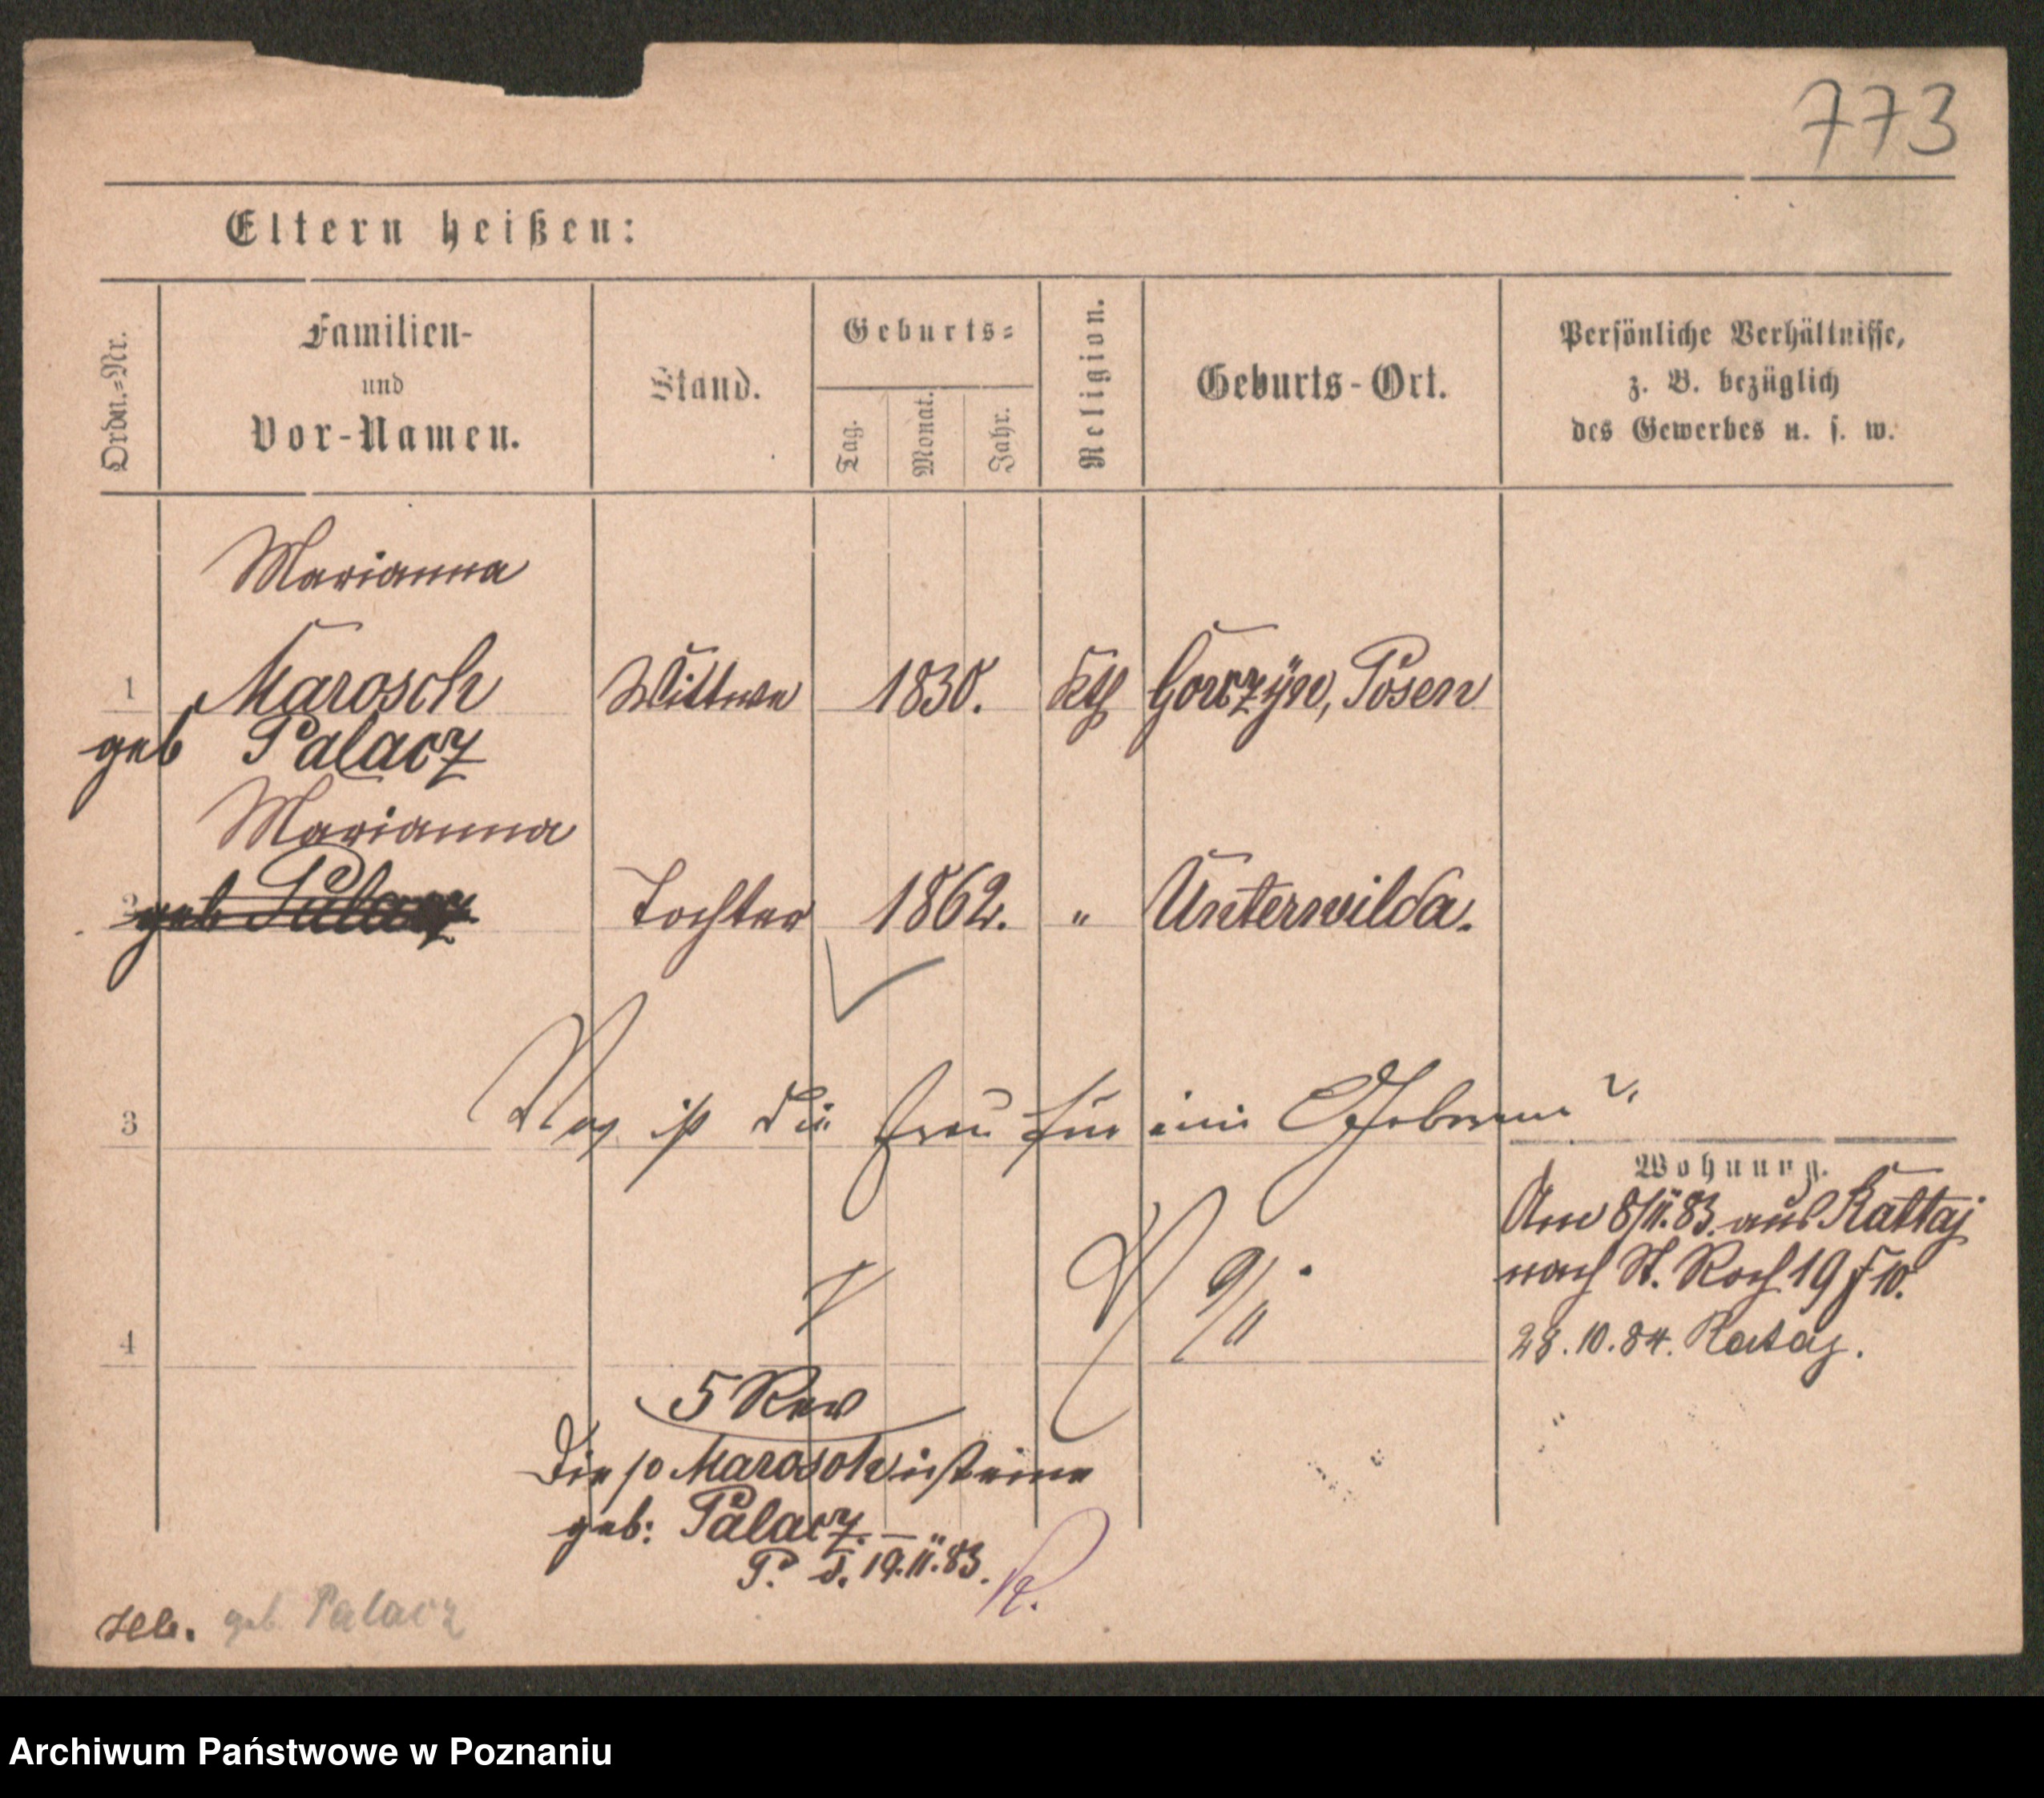 773
Eltern heißen:
Ordn.-Nr.
Familien-
und
Vor-Namen.
Stand.
Geburts-
Tag.
Monat.
Jahr.
Religion.
Geburts-Ort.
Persönliche Verhältnisse,
z. B. bezüglich
des Gewerbes u. s. w.
Marianna
1 Marosch Wittwe 1830. kth Gorczyn, Posen
geb Palacz
Marianna
2 geb Palacz Tochter 1862. " Unterwilda.
3 Was ist die Frau für eine Geborene?
Wohnung.
Am 8/II.83. aus Rattaj
nach St. Roch 19 F 10.
9/11
4 28.10.84. Rataj.
5 Rev
Die p Marosch ist eine
geb: Palacz. —
P. d. 19.II.83.
geb. Palacz
Archiwum Państwowe w Poznaniu